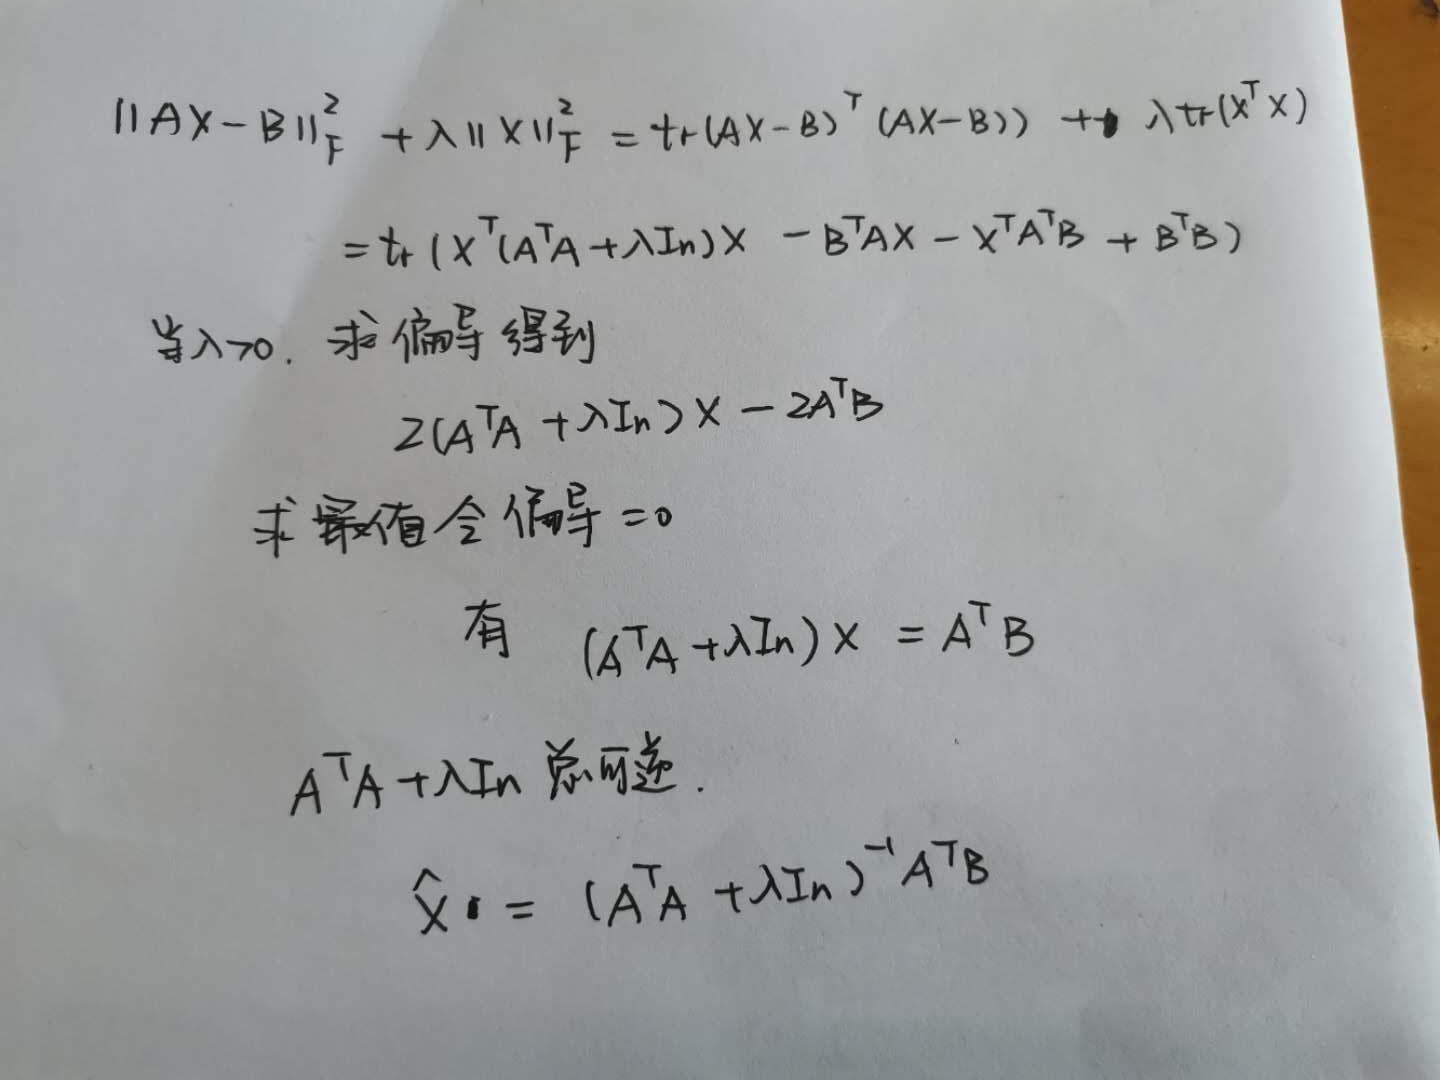 ||AX-B||²_F + λ||X||²_F = tr(AX-B)^T (AX-B)) + λtr(X^T X)
= tr(X^T(A^TA+λIn)X - B^TAX - X^TA^TB + B^TB)
当λ>0. 求偏导得到
2(A^TA+λIn)X - 2A^TB
求最值令偏导=0
有 (A^TA+λIn)X = A^TB
A^TA+λIn 总可逆.
X̂ = (A^TA+λIn)^-1 A^TB